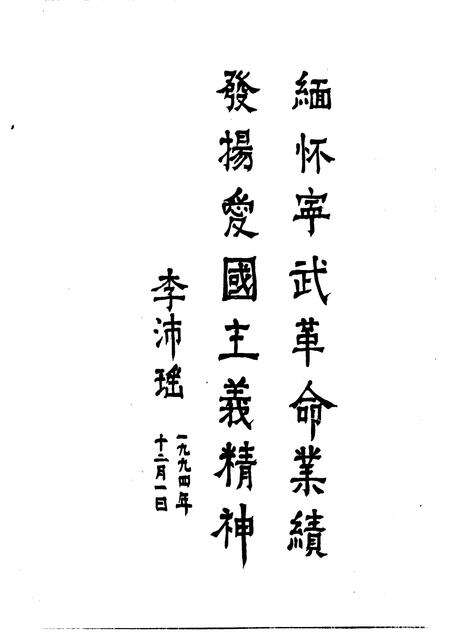 緬怀寜武革命業績
發揚愛國主義精神
李沛瑶
一九九四年
十二月一日